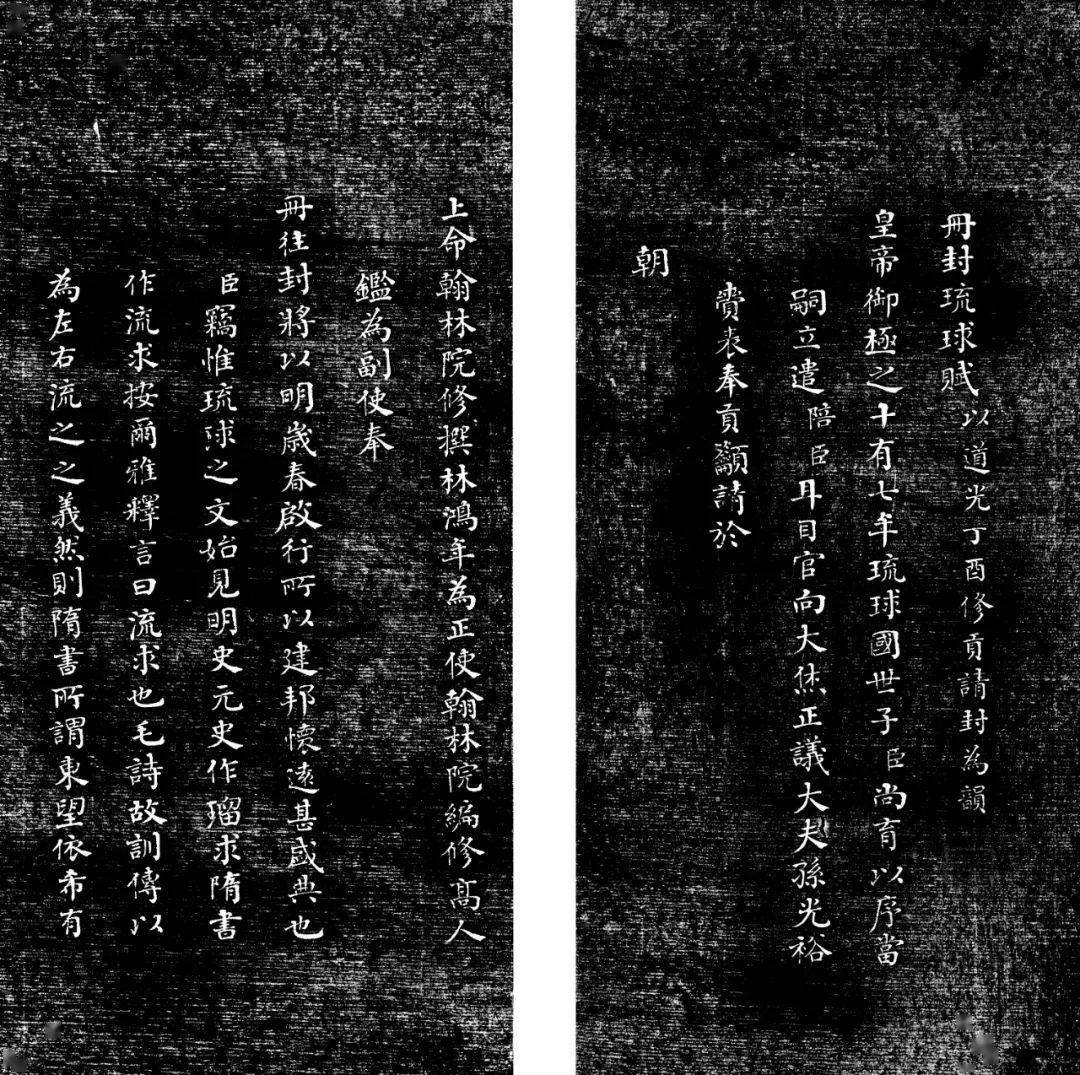 冊封琉球賦以道光丁酉修貢請封為韻
皇帝御極之十有七年琉球國世子臣尚育以序當
嗣立遣陪臣耳目官向大烋正議大夫孫光裕
賫表奉貢籲請於
朝
上命翰林院修撰林鴻年為正使翰林院編修高人
鑑為副使奉
冊往封將以明歲春啟行所以建邦懷遠甚盛典也
臣竊惟琉球之文始見明史元史作瑠求隋書
作流求按爾雅釋言曰流求也毛詩故訓傳以
為左右流之之義然則隋書所謂東望依希有